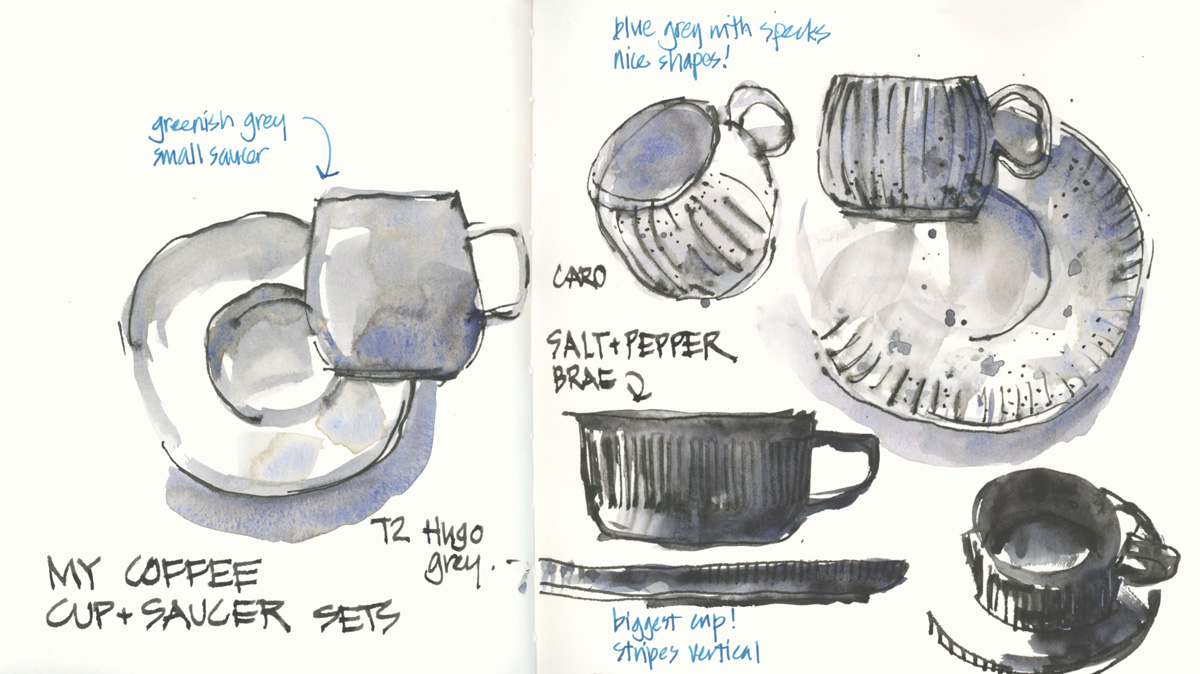 greenish grey
small saucer
T2 Hugo
grey.
MY COFFEE
CUP + SAUCER SETS
blue grey with specks
nice shapes!
CARO
SALT + PEPPER
BRAE
biggest cup!
stripes vertical